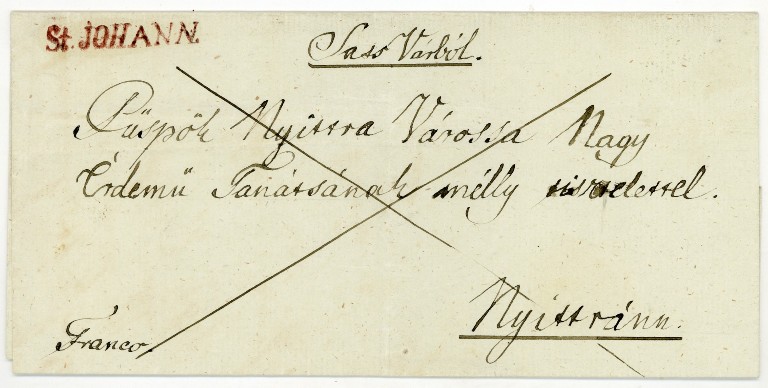 St. JOHANN.
Sass Várból.
Püspök Nyittra Várossa Nagy
Érdemü Tanátsának mélly tisztelettel.
Nyittránn.
Franco.